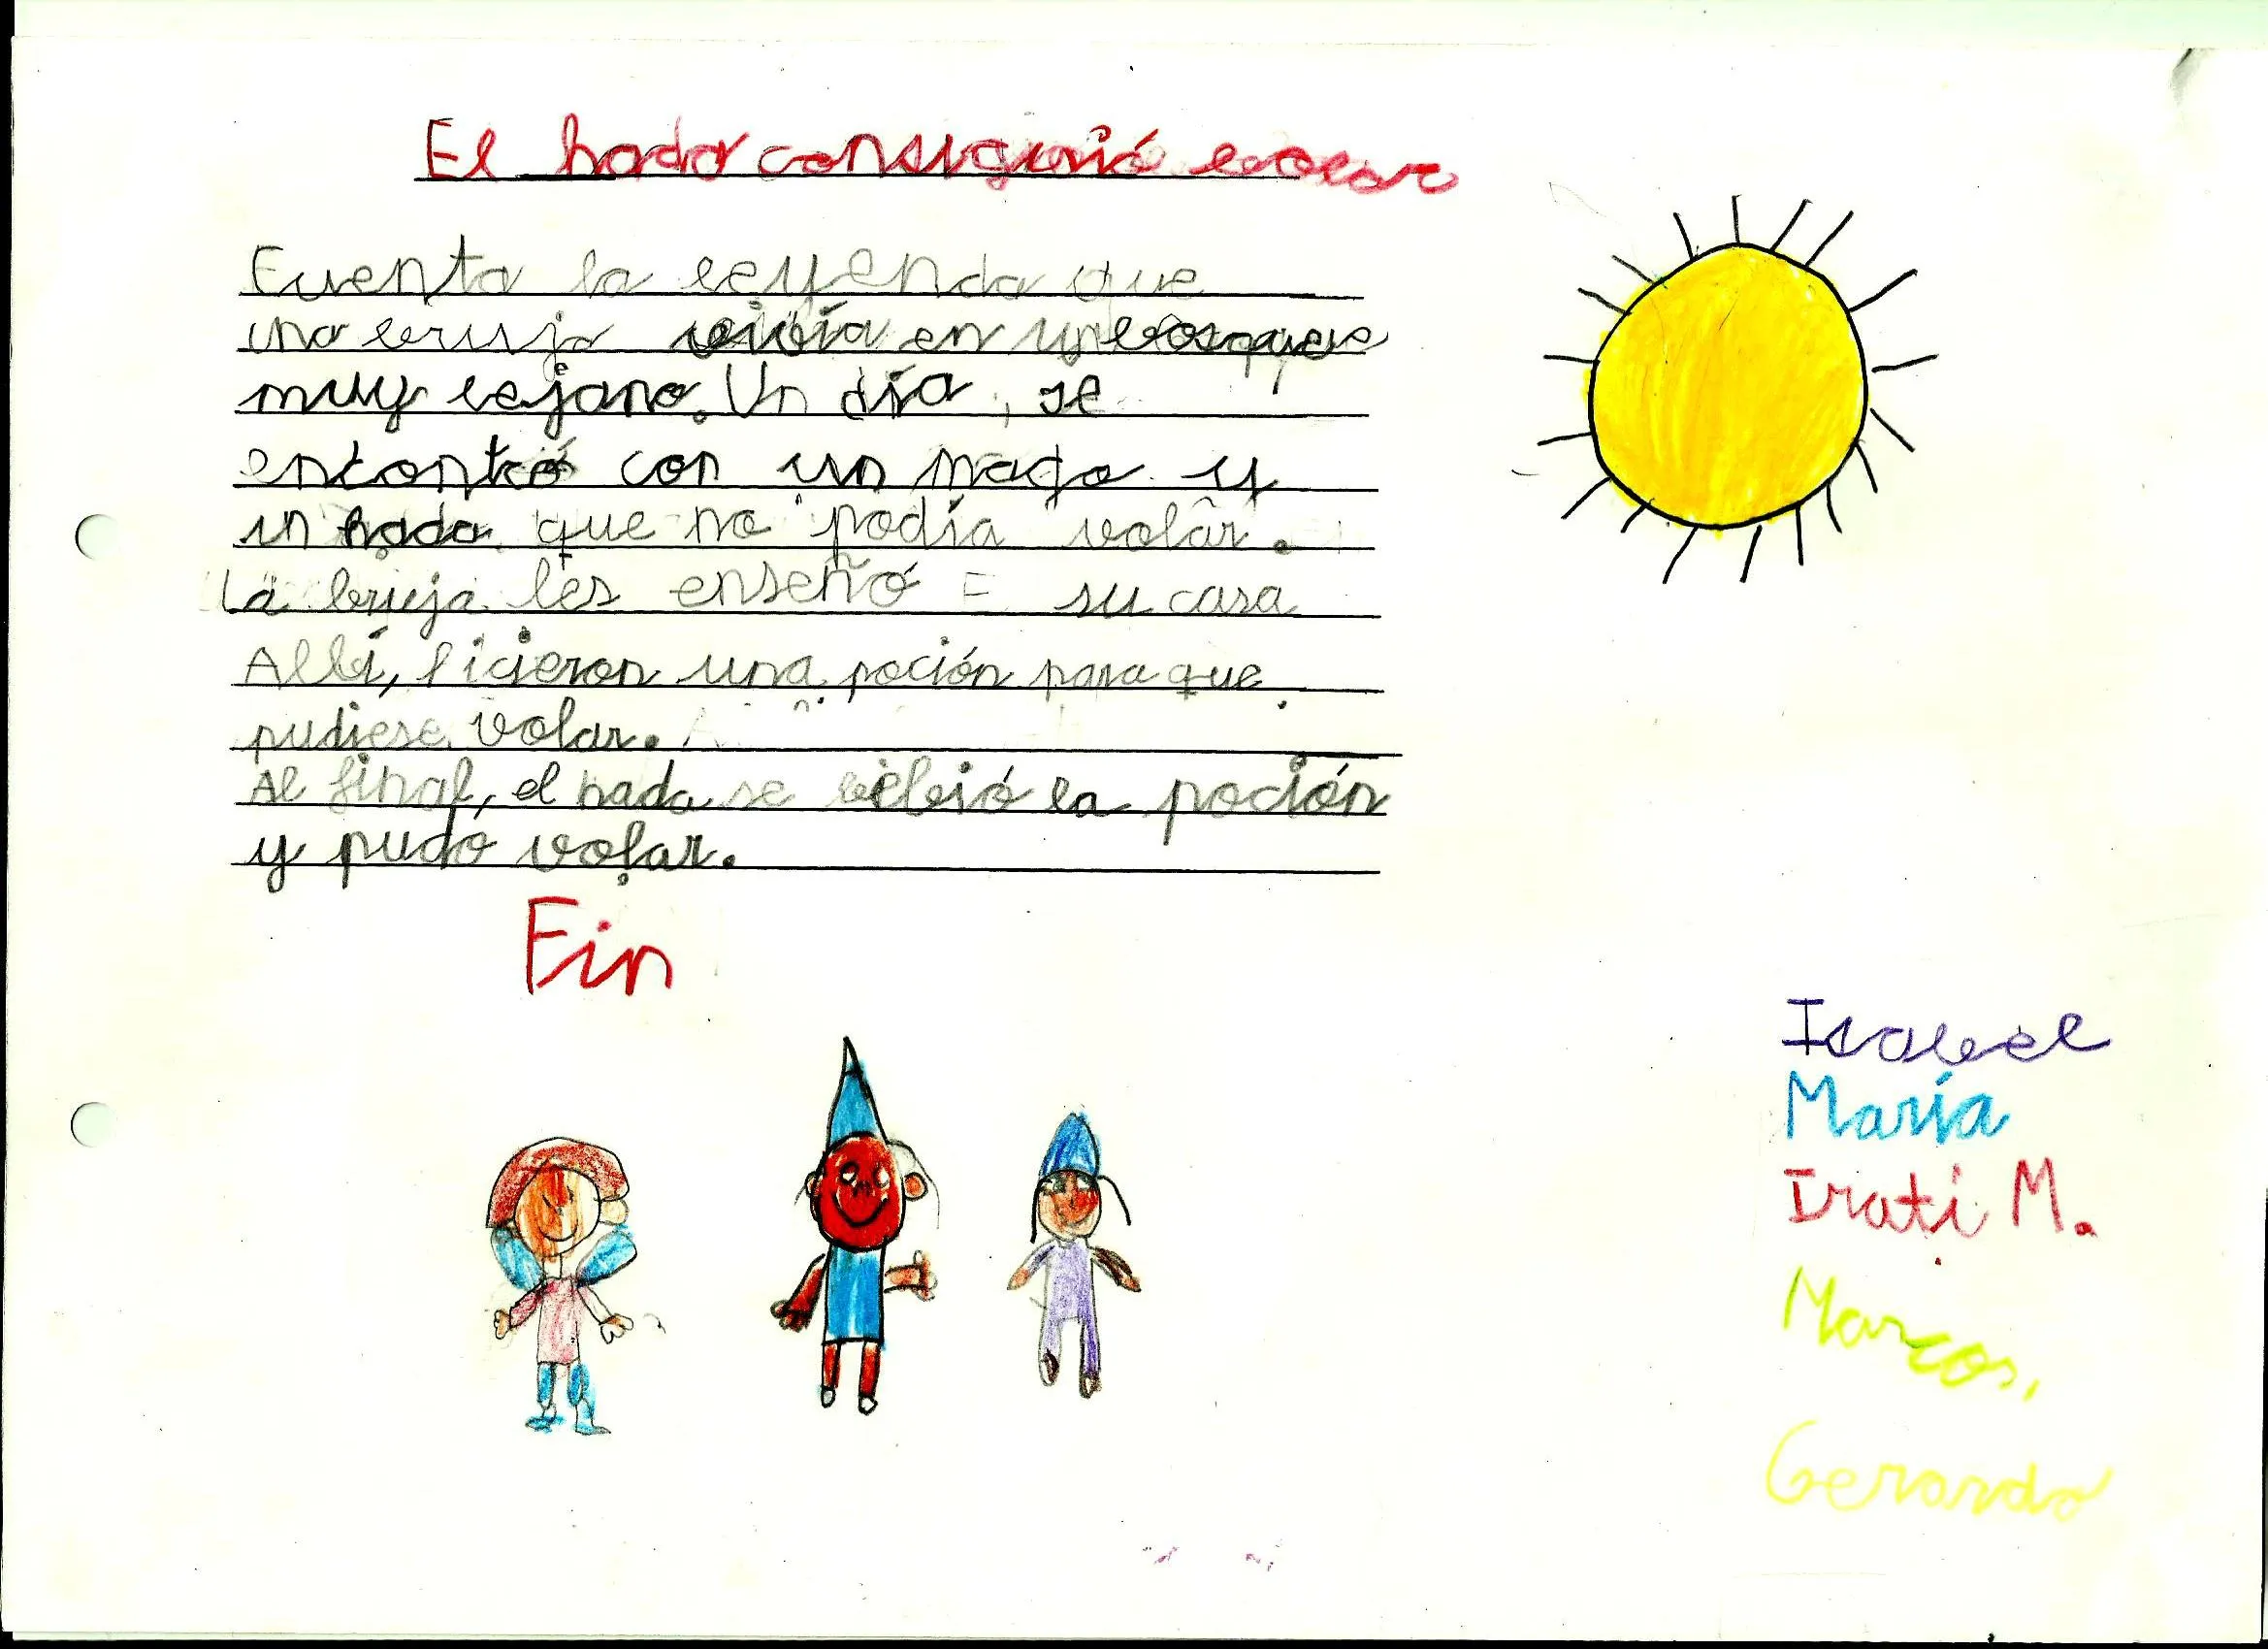 El hada consiguió volar
Cuenta la leyenda que
una bruja vivía en un bosque
muy lejano. Un día, se
encontró con un mago y
un hada que no podía volar.
La bruja les enseñó su casa
Allí, hicieron una poción para que
pudiese volar.
Al final, el hada se bebió la poción
y pudo volar.
Fin
Isabel
María
Irati M.
Marcos,
Gerardo